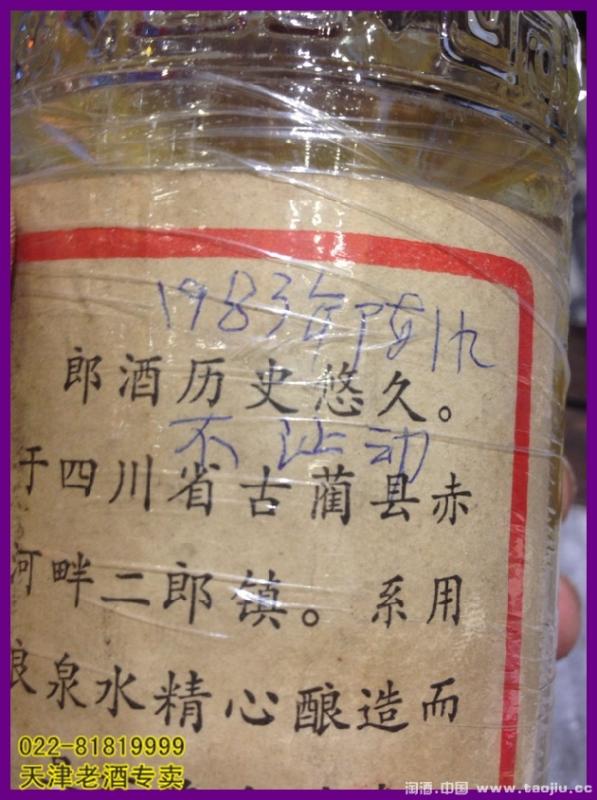 1983年
郎酒历史悠久。
不让动
于四川省古蔺县赤
河畔二郎镇。系用
泉水精心酿造而
022-81819999
天津老酒专卖
淘酒.中国 www.taojiu.cc